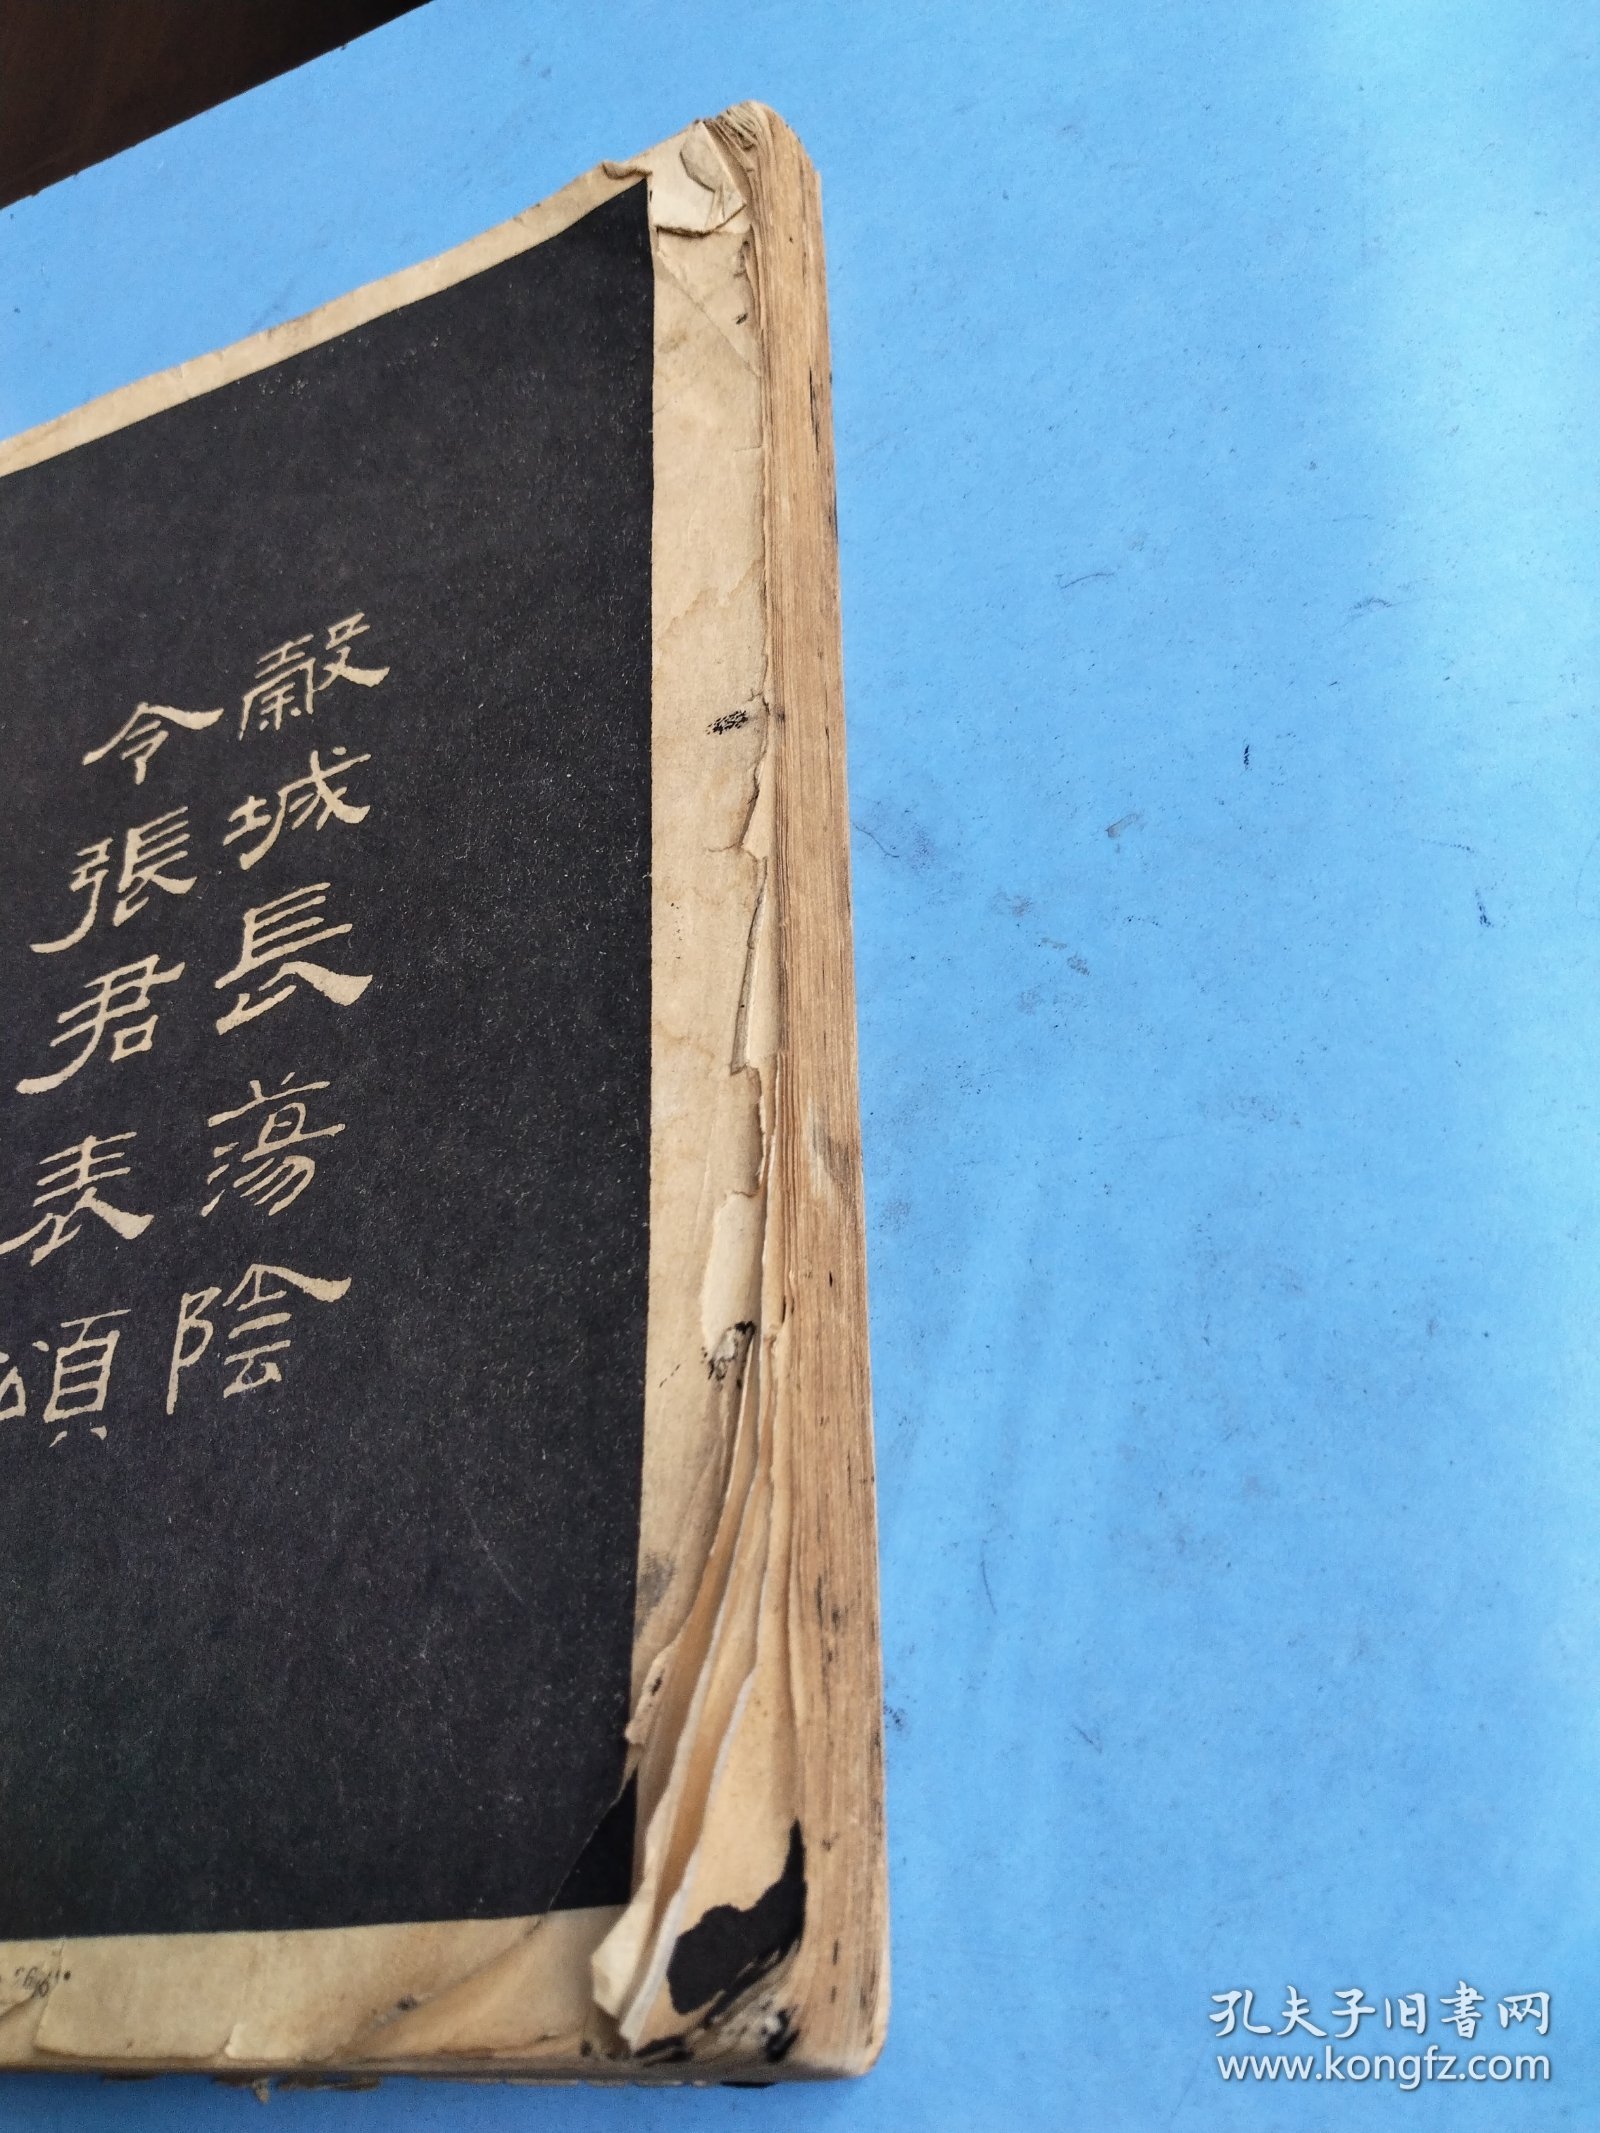 穀城長蕩陰
令張君表頌
孔夫子旧書网
www.kongfz.com